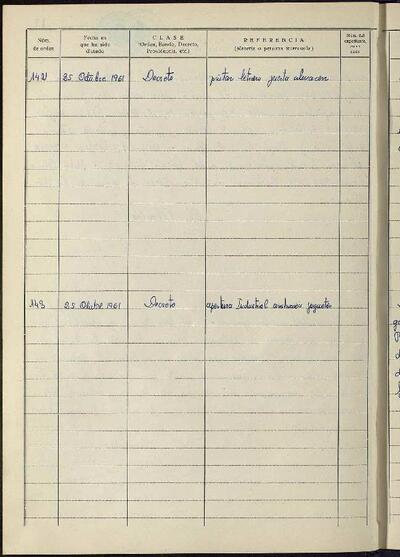 Núm. de orden
Fecha en que ha sido dictado
CLASE
(Orden, Bando, Decreto, Providencia, etc.)
REFERENCIA
(Materia o persona interesada)
Núm. del expediente
142 25 Octubre 1961 Decreto pintar letrero puerta almacen
143 25 Octubre 1961 Decreto apertura Industrial construccion juguetes